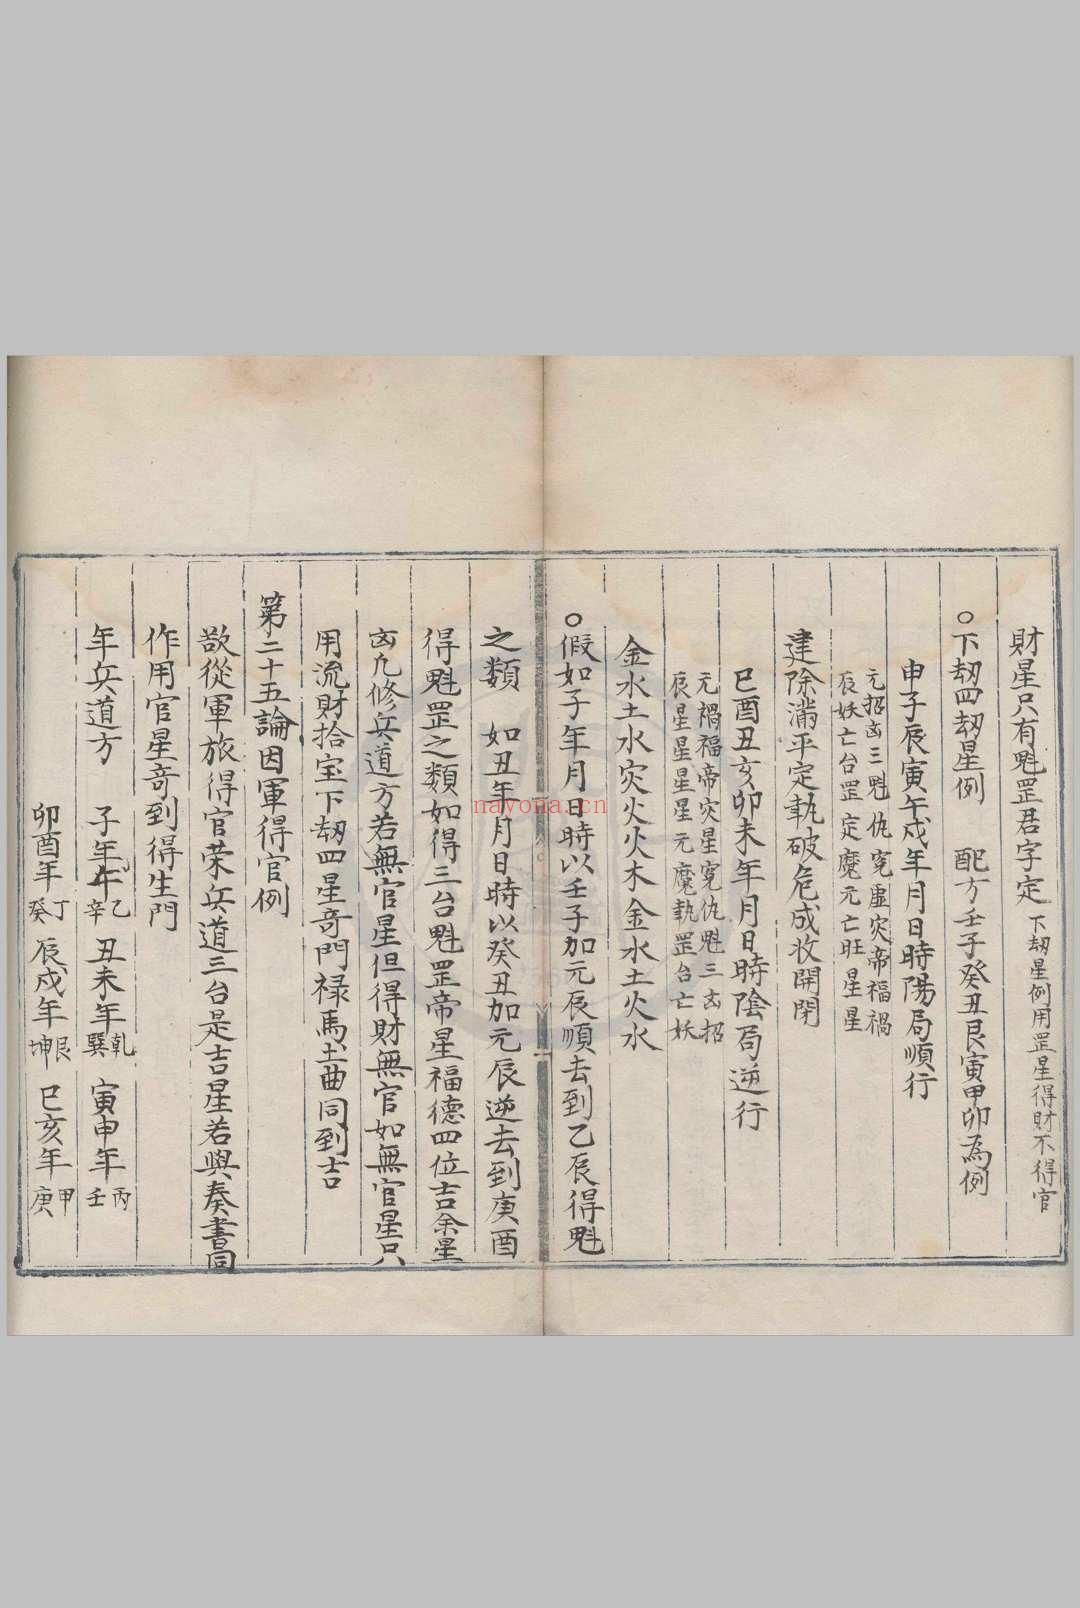 財星只有魁罡君字定 下刼星例用罡星得財不得官
○下刼四刼星例 配方壬子癸丑艮寅甲卯為例
申子辰寅午戍年月日時陽局順行
元招凶三魁仇寃虛灾帝福禍
辰妖亡台罡定魔元亡旺星星
建除滿平定執破危成收開閉
巳酉丑亥卯未年月日時陰局逆行
元禍福帝灾星寃仇魁三凶招
辰星星星星元魔執罡台亡妖
金水土水灾火火木金水土火水
○假如子年月日時以壬子加元辰順去到乙辰得魁
之類 如丑年月日時以癸丑加元辰逆去到庚酉
得魁罡之類如得三台魁罡帝星福德四位吉余星
凶凢修兵道方若無官星但得財無官如無官星只
用流財拾宝下刼四星竒門禄馬土曲同到吉
第二十五論因軍得官例
欲從軍旅得官荣兵道三台是吉星若與奏書同
作用官星竒到得生門
年兵道方 子年午乙辛 丑未年乾巽 寅申年丙壬
卯酉年丁癸 辰戍年艮坤 巳亥年甲庚
nayona.cn